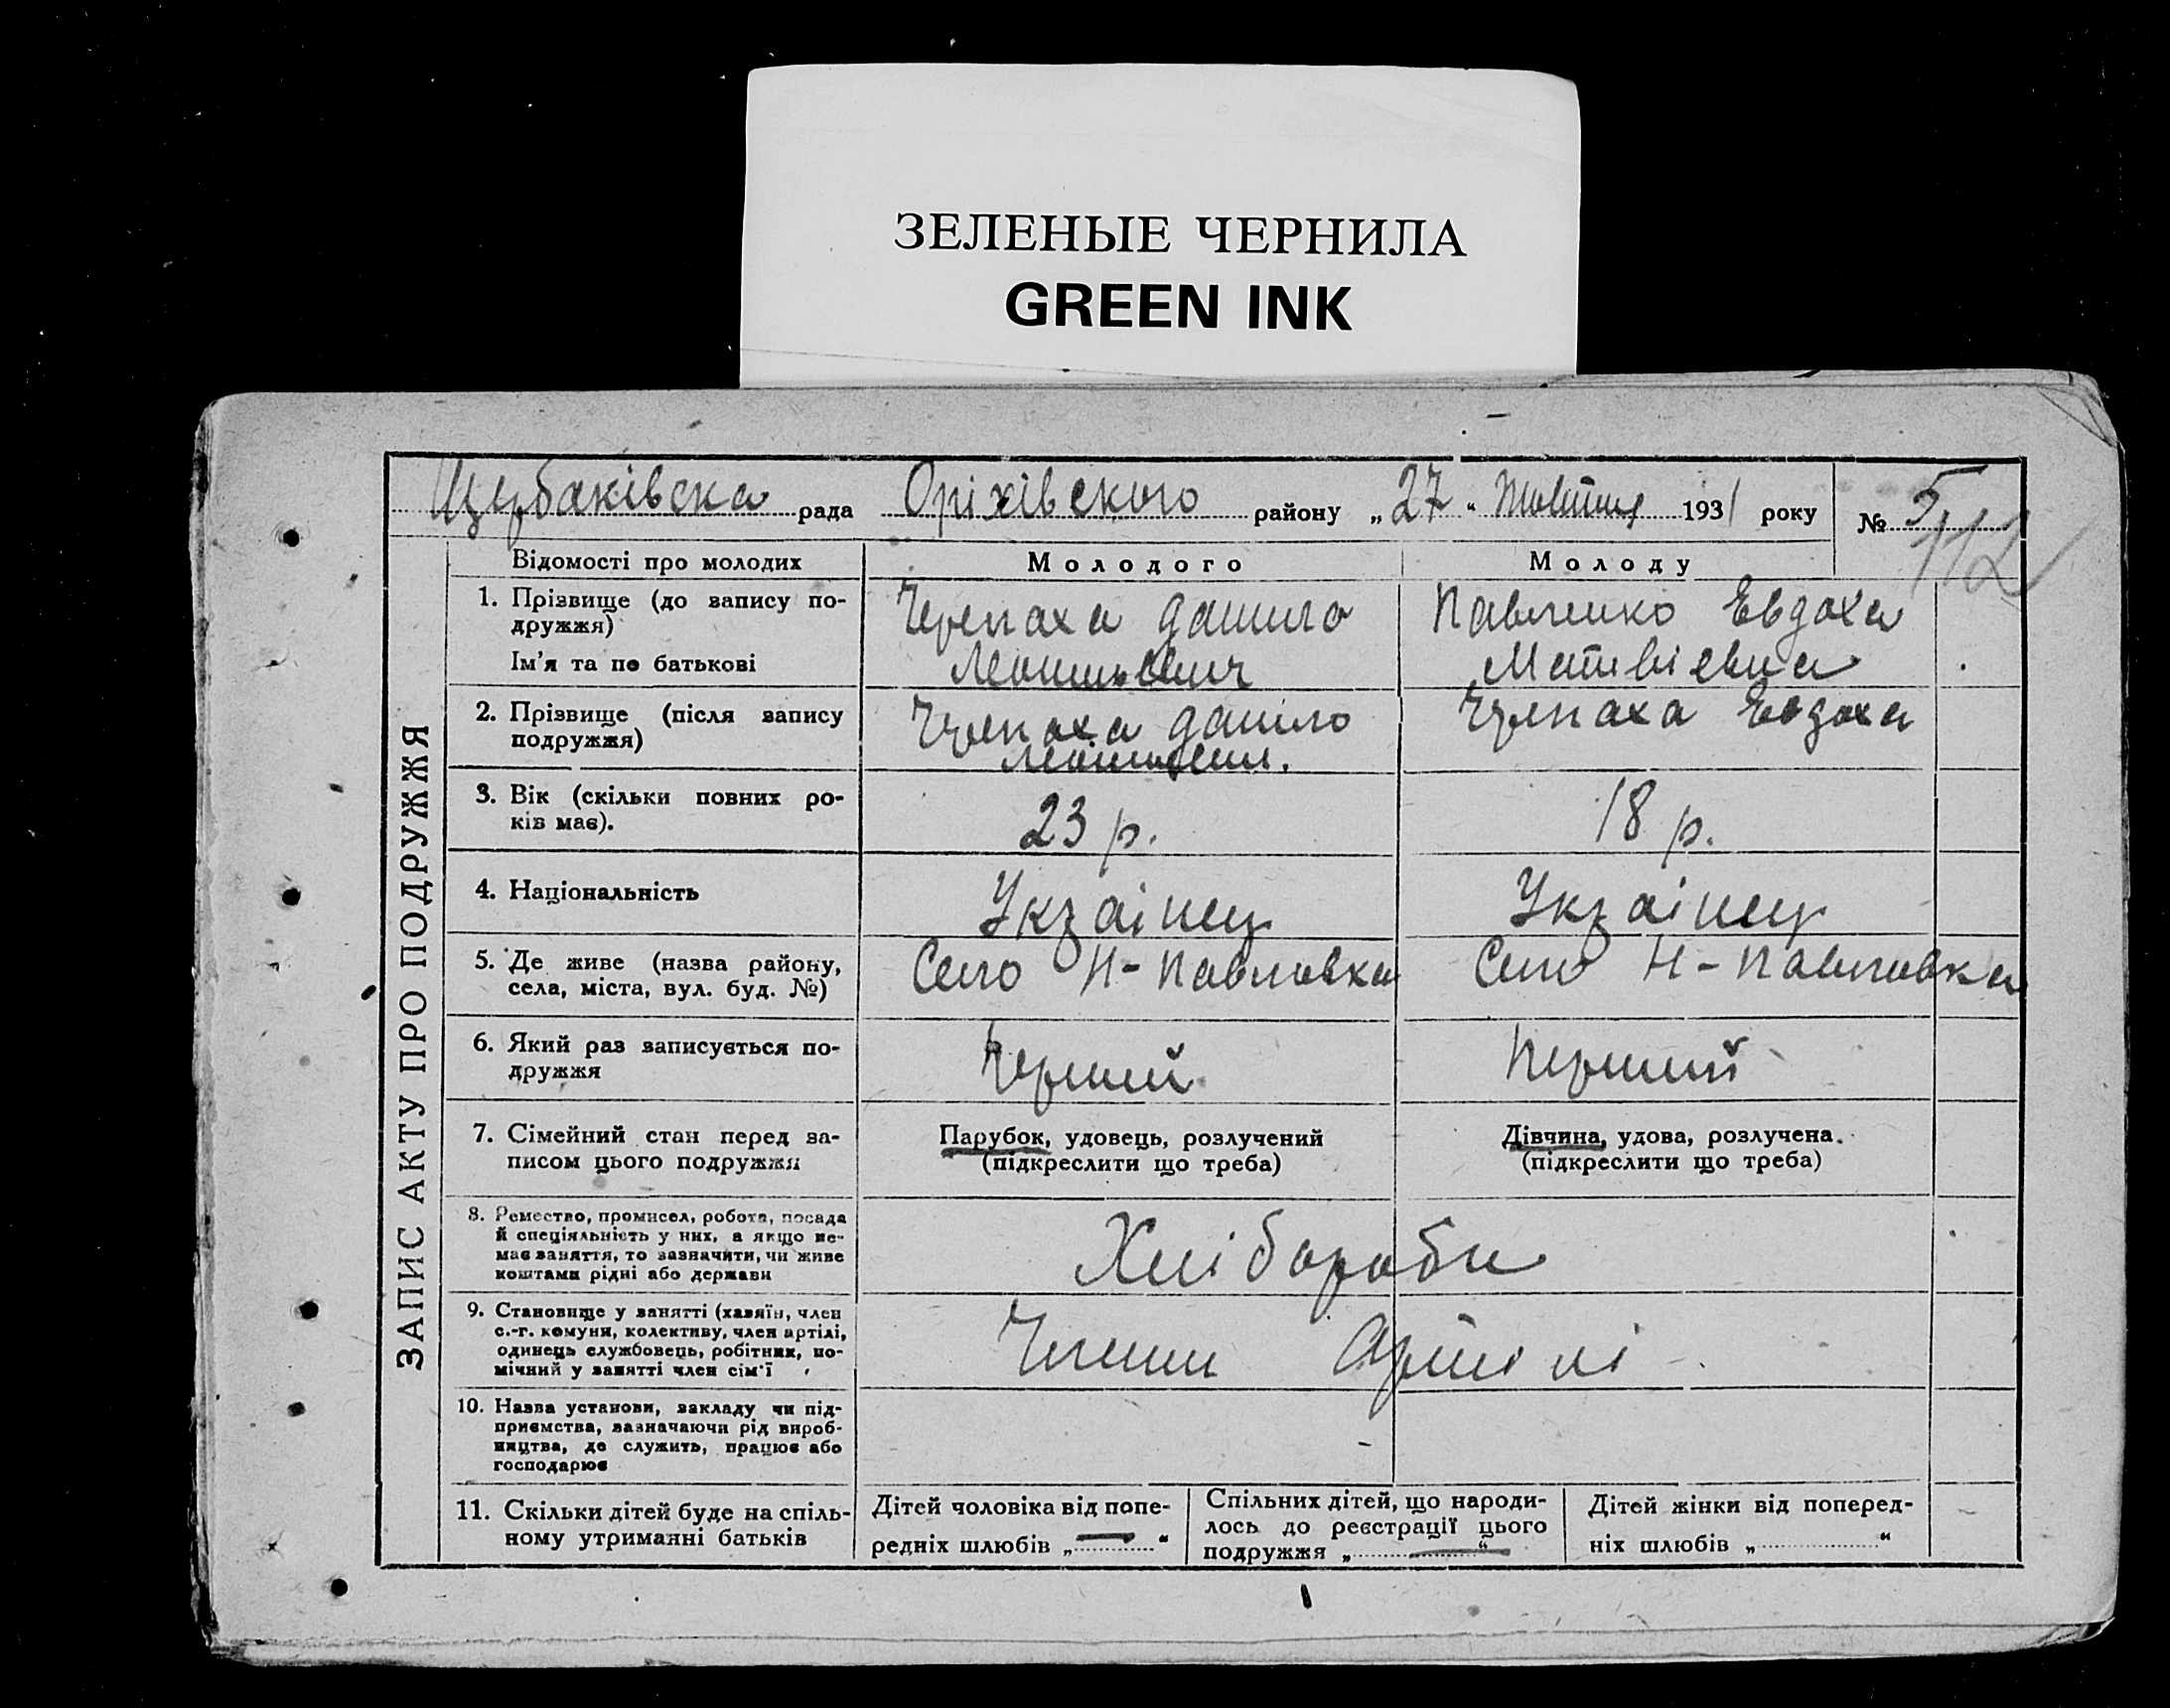 ЗЕЛЕНЫЕ ЧЕРНИЛА
GREEN INK
Щербаківска рада Оріхівского району „27“ Жовтня 1931 року № 5
112
ЗАПИС АКТУ ПРО ПОДРУЖЖЯ
Відомості про молодих Молодого Молоду
1. Прізвище (до запису по-
дружжя)
Ім'я та по батькові
Черепаха Данило
Павленко Евдоха
Матвієвна
2. Прізвище (після запису
подружжя)
Черепаха Данило
Черепаха Евдоха
3. Вік (скільки повних ро-
ків має).
23 р.
18 р.
4. Національність
Українец
Українец
5. Де живе (назва району,
села, міста, вул. буд. №)
Село Н-Павловка
Село Н-Павловка
6. Який раз записується по-
дружжя
Перший
Перший
7. Сімейний стан перед за-
писом цього подружжя
Парубок, удовець, розлучений
(підкреслити що треба)
Дівчина, удова, розлучена.
(підкреслити що треба)
8. Ремество, промисел, робота, посада
й спеціяльність у них, а якщо не-
має заняття, то зазначити, чи живе
коштами рідні або держави
Хлібороби
9. Становище у занятті (хазяїн, член
с.-г. комуни, колективу, член артілі,
одинець службовець, робітник, по-
мічний у занятті член сім'ї
Члени Артілі
10. Назва установи, закладу чи під-
приємства, зазначаючи рід вироб-
ництва, де служить, працює або
господарює
11. Скільки дітей буде на спіль-
ному утриманні батьків
Дітей чоловіка від попе-
редніх шлюбів „—“
Спільних дітей, що народи-
лось до реєстрації цього
подружжя „—“
Дітей жінки від поперед-
ніх шлюбів „ “